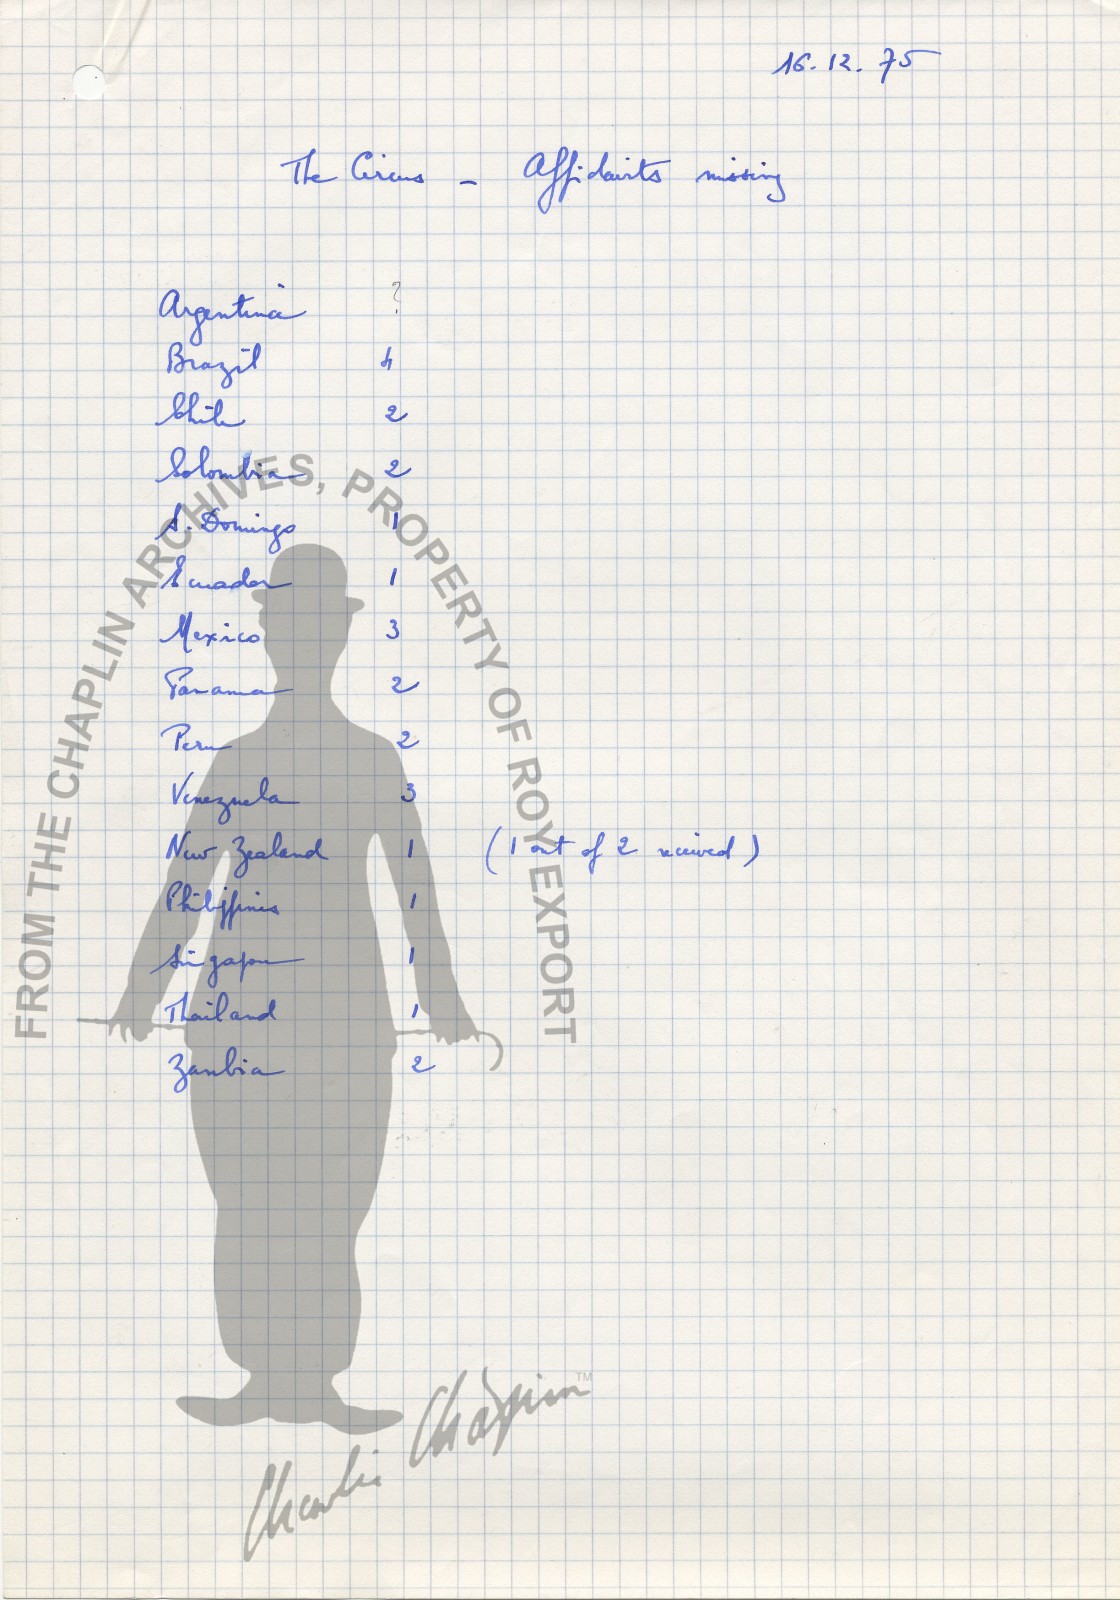 16.12.75
The Circus - Affidavits missing
Argentina ?
Brazil 4
Chile 2
Colombia 2
S. Domingo 1
Ecuador 1
Mexico 3
Panama 2
Peru 2
Venezuela 3
New Zealand 1 (1 out of 2 received)
Philippines 1
Singapour 1
Thailand 1
Zambia 2
FROM THE CHAPLIN ARCHIVES, PROPERTY OF ROY EXPORT
Charlie Chaplin TM